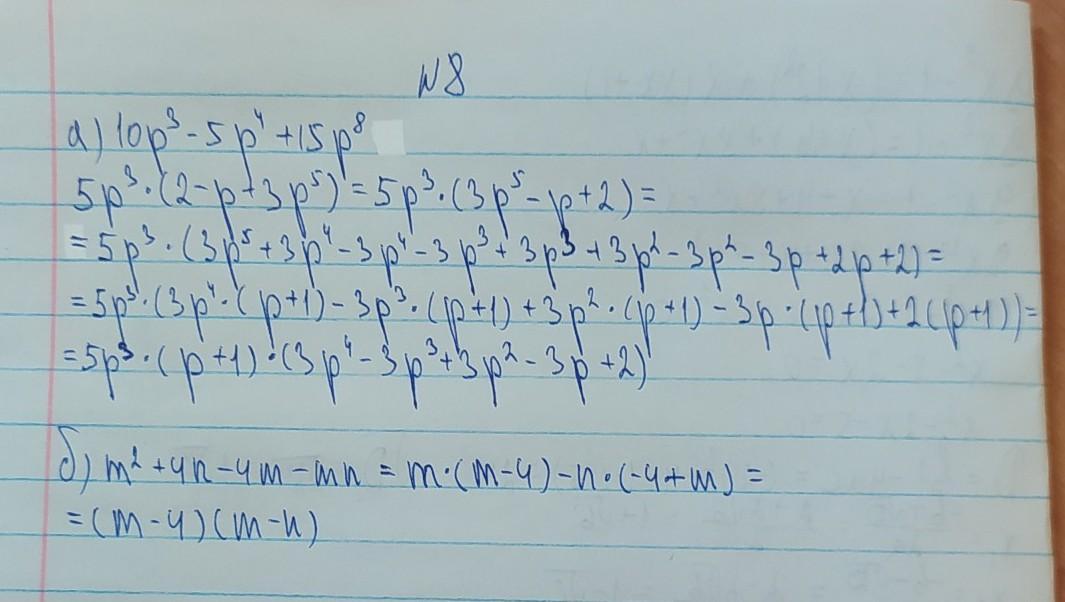 N8
а) 10p³ - 5p⁴ + 15p⁸
5p³·(2-p+3p⁵) = 5p³·(3p⁵-p+2) =
= 5p³·(3p⁵+3p⁴-3p⁴-3p³+3p³+3p²-3p²-3p+2p+2) =
= 5p³·(3p⁴·(p+1)-3p³·(p+1)+3p²·(p+1)-3p·(p+1)+2(p+1)) =
= 5p³·(p+1)·(3p⁴-3p³+3p²-3p+2)
б) m²+4n-4m-mn = m·(m-4)-n·(-4+m) =
= (m-4)(m-n)